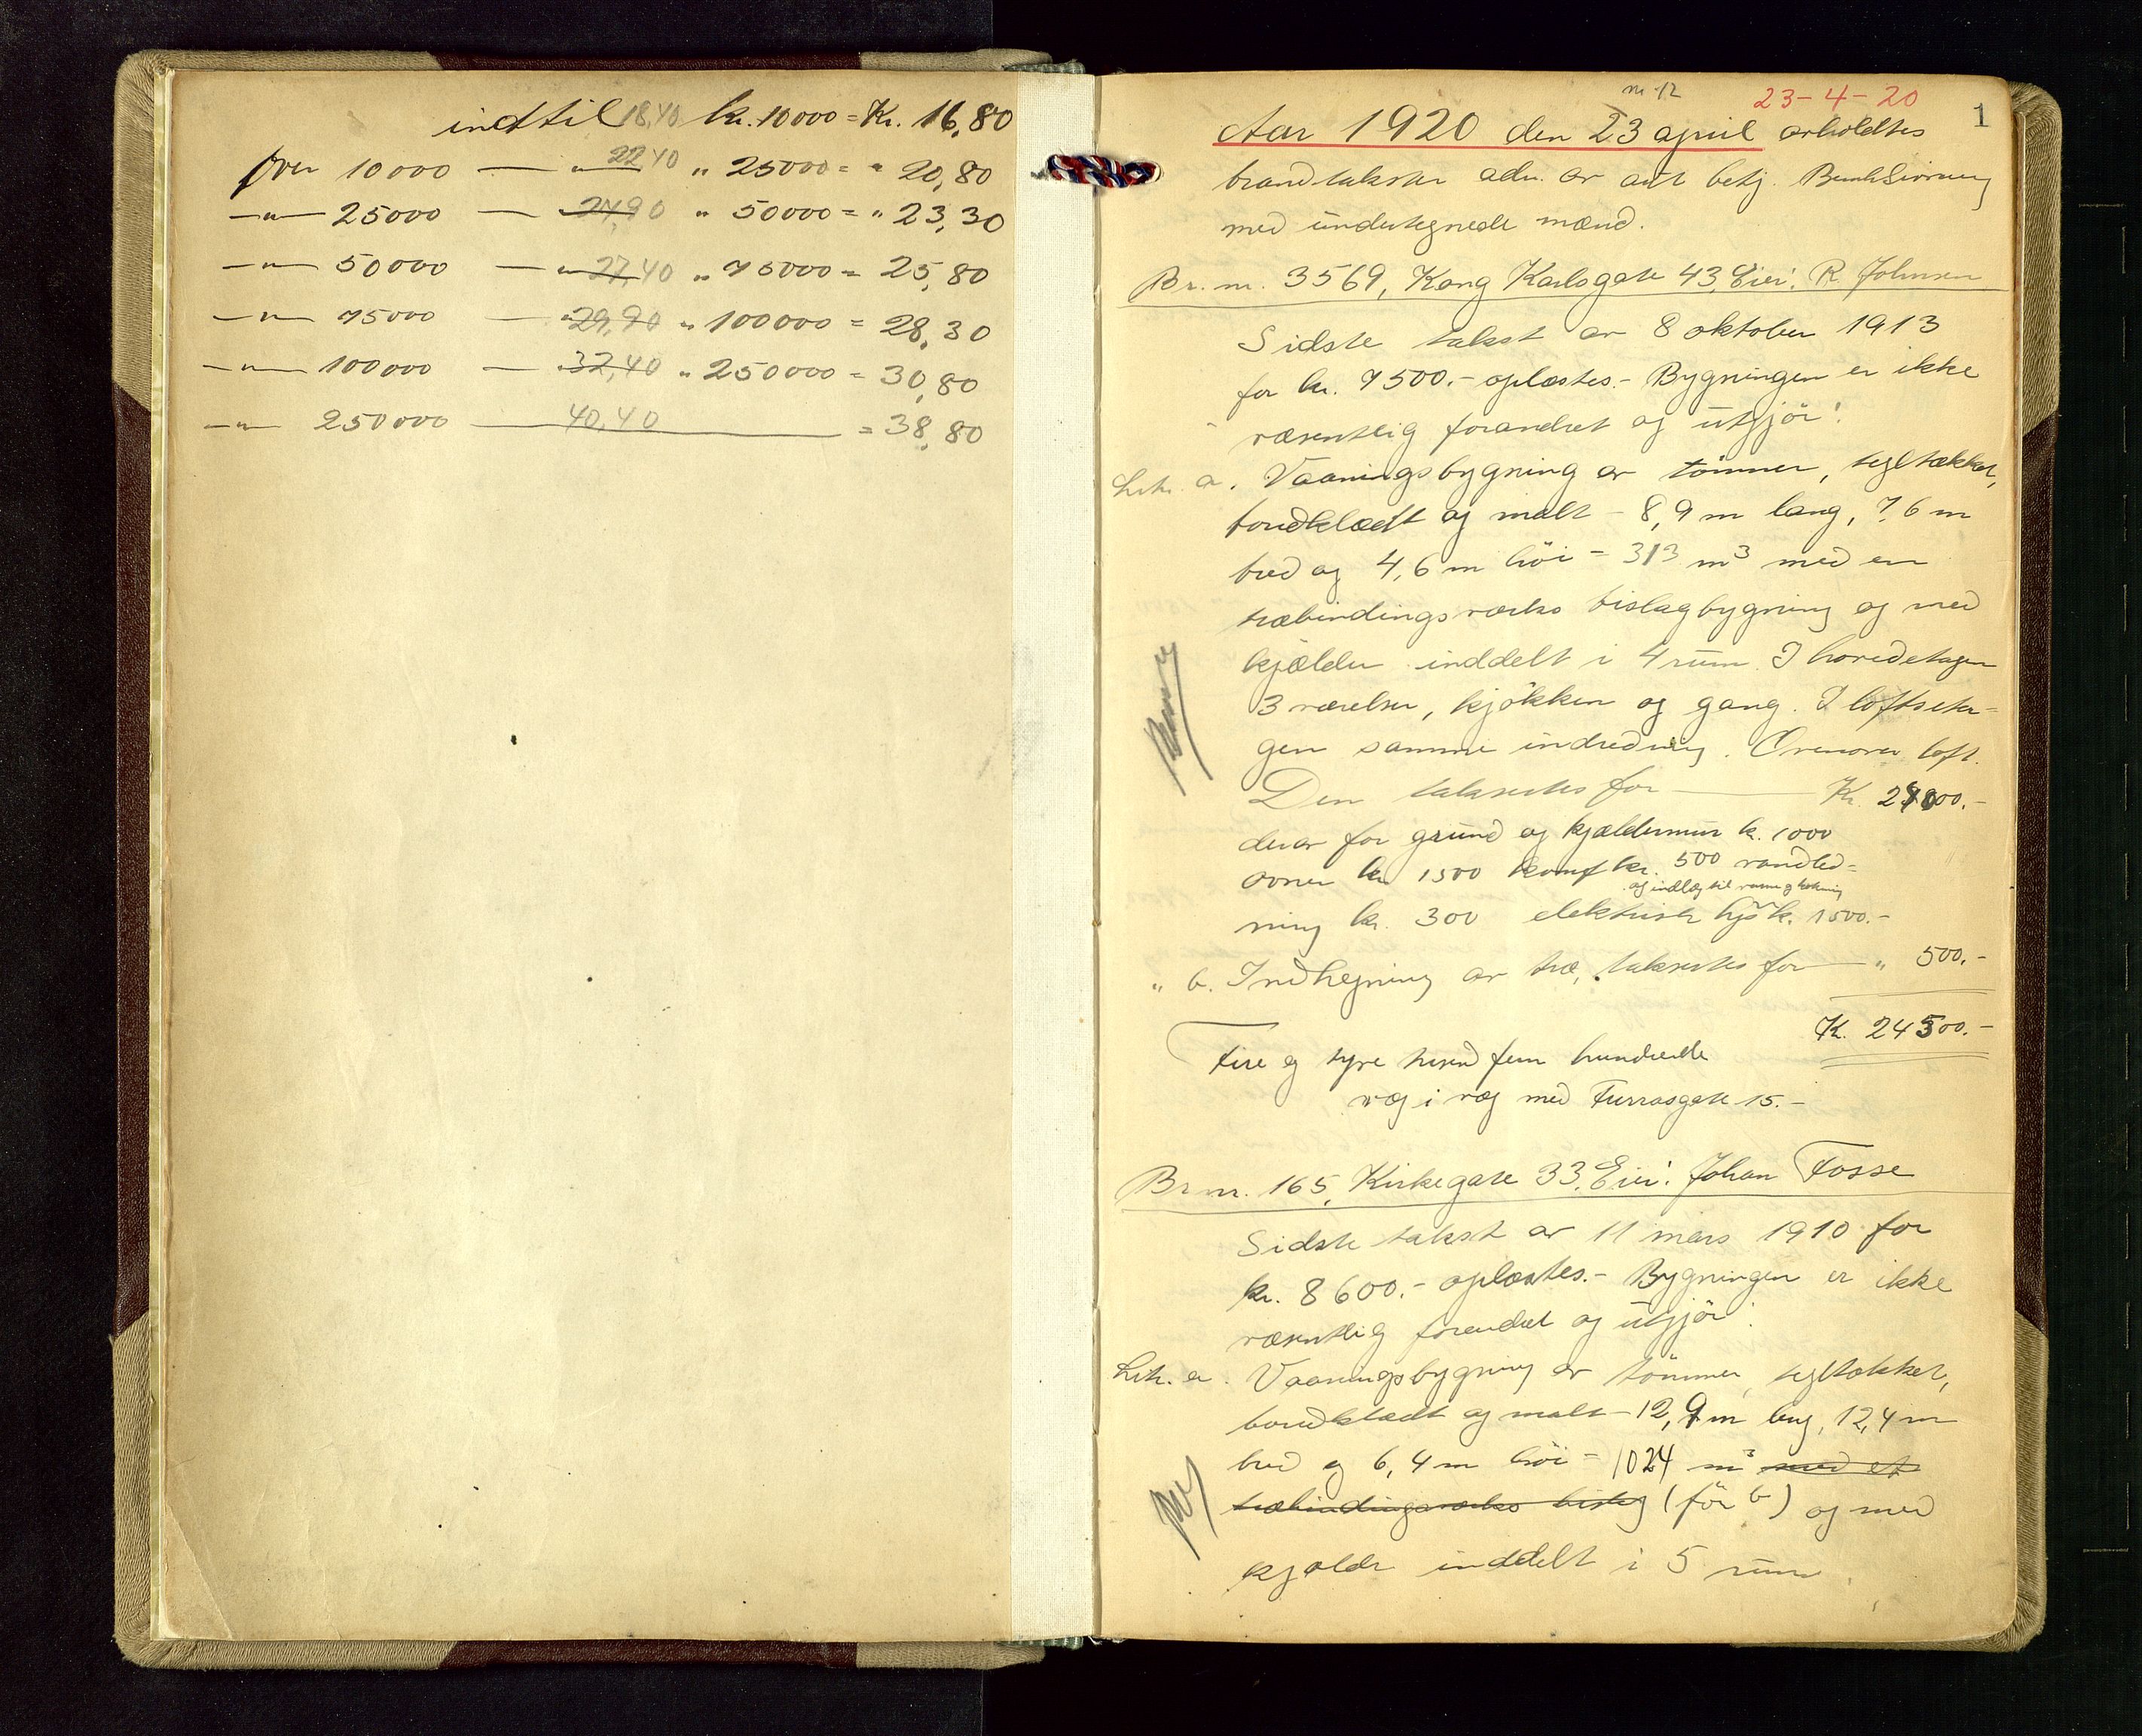 indtil 18,40 kr. 10000 = Kr. 16,80
over 10000 — „ 22,40 „ 25000 = „ 20,80
—„— 25000 — 24,90 „ 50000 = „ 23,30
—„— 50000 — „ 27,40 „ 75000 = 25,80
—„— 75000 — „ 29,90 „ 100000 = 28,30
—„— 100000 — 32,40 „ 250000 = 30,80
—„— 250000 — 40,40 — = 38,80
23-4-20
1
Aar 1920 den 23 april avholdtes
brandtakster adm. av
med undertegnede mænd.
Br. nr. 3569, Kong Karlsgate 43, Eier: R. Johnsen
Sidste takst av 8 oktober 1913
for kr. 7500.- oplæstes.- Bygningen er ikke
væsentlig forandret og utgjör:
Litr. a. Vaaningsbygning av tömmer, tegltækket,
bordklædt og malt - 8,9 m lang, 7,6 m
bred og 4,6 m höi = 313 m³ med en
træbindingsverks bislagbygning og med
kjælder inddelt i 4 rum. I hovedetagen
3 værelser, kjökken og gang. I loftseta-
gen samme indredning. Ovenover loft.
Den taksertes for — Kr. 24000.-
derav for grund og kjældermur k. 1000
ovner kr 1500 komf kr. 500 vandled-
og indlæg til varme og kokning
ning kr. 300 elektrisk lys k. 1500.-
„ b. Indhegning av træ, taksertes for — „ 500.-
K. 24500.-
Fire og tyve tusen fem hundrede
væg i væg med Furrasgate 15.-
Br nr. 165, Kirkegate 33, Eier: Johan Fosse
Sidste takst av 11 mars 1910 for
kr. 8600.- oplæstes.- Bygningen er ikke
væsentlig forandret og utgjör:
Litr. a. Vaaningsbygning av tömmer, tegltækket,
bordklædt og malt - 12,9 m lang, 12,4 m
bred og 6,4 m höi = 1024 m³ med et
træbindingsverks bislag (för b) og med
kjælder inddelt i 5 rum.